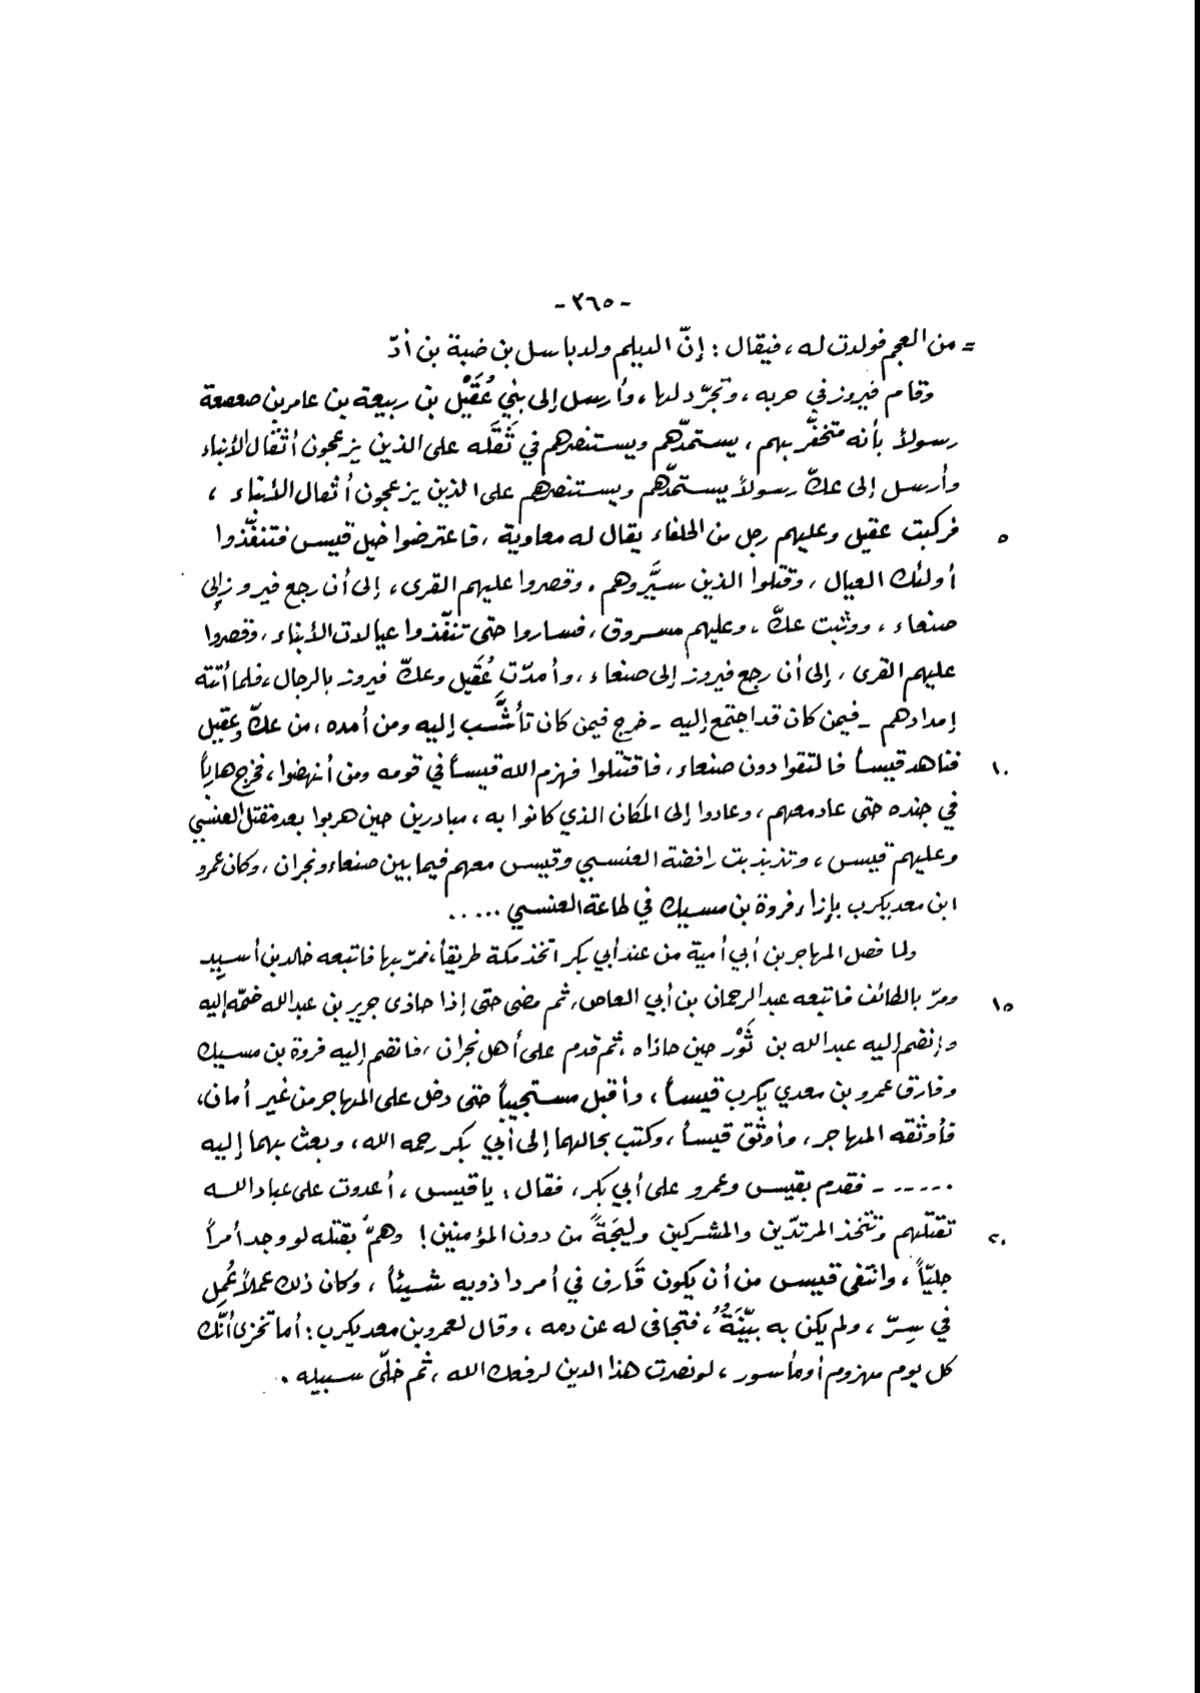 -٣٦٥-
= من العجم فولدت له ، فيقال : إنّ الديلم ولد باسل بن ضبة بن أدّ
وقام فيروز في حربه ، وتجرّد لها ، وأرسل إلى بني عُقَيْل بن ربيعة بن عامر بن صعصعة
رسولاً بأنه متخفّر بهم ، يستمدّهم ويستنصرهم في ثَقَله على الذين يزعجون أثقال الأبناء
وأرسل إلى عكّ رسولاً يستمدّهم ويستنصرهم على الذين يزعجون أثقال الأبناء ،
فركبت عقيل وعليهم رجل من الحلفاء يقال له معاوية ، فاعترضوا خيل قيس فتنفّذوا
٥
أولئك العيال ، وقتلوا الذين سيَّروهم . وقصروا عليهم القرى ، إلى أن رجع فيروز إلى
صنعاء ، ووثبت عكّ ، وعليهم مسروق ، فساروا حتى تنفّذوا عيالات الأبناء ، وقصروا
عليهم القرى ، إلى أن رجع فيروز إلى صنعاء ، وأمدّت عُقَيل وعكّ فيروز بالرجال ، فلما أتته
إمدادهم - فيمن كان قد اجتمع إليه - خرج فيمن كان تأشَّب إليه ومن أمده ، من عكّ وعقيل
فناهد قيساً فالتقوا دون صنعاء ، فاقتتلوا فهزم الله قيساً في قومه ومن أنهضوا ، فخرج هارباً
١٠
في جنده حتى عاد معهم ، وعادوا إلى المكان الذي كانوا به ، مبادرين حين هربوا بعد مقتل العنسي
وعليهم قيس ، وتذبذبت رافضة العنسي وقيس معهم فيما بين صنعاء ونجران ، وكان عمرو
ابن معديكرب بإزاء فروة بن مسيك في طاعة العنسي .....
ولما فصل المهاجر بن أبي أمية من عند أبي بكر اتخذ مكة طريقاً ، فمرّ بها فاتبعه خالد بن أسيد
ومرّ بالطائف فاتبعه عبد الرحمان بن أبي العاص ، ثم مضى حتى إذا حاذى جرير بن عبدالله ضمّه إليه
١٥
وانضم إليه عبدالله بن ثَوْر حين حاذاه ، ثم قدم على أهل نجران ، فانضم إليه فروة بن مسيك
وفارق عمرو بن معدي يكرب قيساً ، وأقبل مستجيباً حتى دخل على المهاجر من غير أمان ،
فأوثقه المهاجر ، وأوثق قيساً ، وكتب بحالهما إلى أبي بكر رحمه الله ، وبعث بهما إليه
...... - فقدم بقيس وعمرو على أبي بكر ، فقال : يا قيس ، أعدوت على عباد الله
تقتلهم وتتخذ المرتدّين والمشركين وليجَةً من دون المؤمنين ! وهمّ بقتله لو وجد أمراً
٢٠
جليّاً ، وانتفى قيس من أن يكون قَارف في أمر داذويه شيئاً ، وكان ذلك عملاً عُمِل
في سِرّ ، ولم يكن به بيّنَةٌ ، فتجافى له عن دمه ، وقال لعمرو بن معديكرب : أما تخزى أنّك
كل يوم مهزوم أو مأسور ، لو نصرت هذا الدين لرفعك الله ، ثم خلّى سبيله .